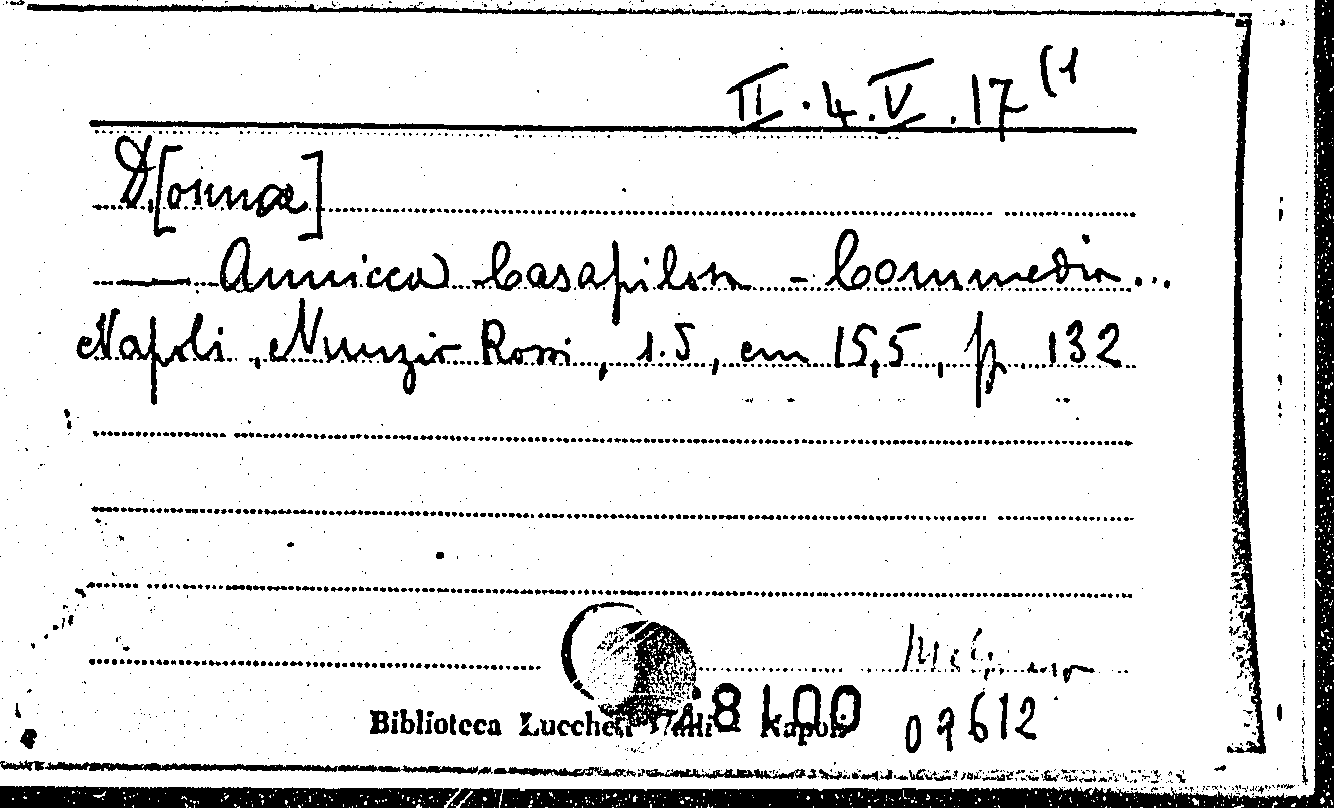 II.4.V.17(1
D[onna]
—— Annicca Casapilosa - Commedia...
Napoli, Nunzio Rossi, 1.5, cm 15,5, p. 132
Biblioteca Lucchesi Palli Napoli
8100
09612